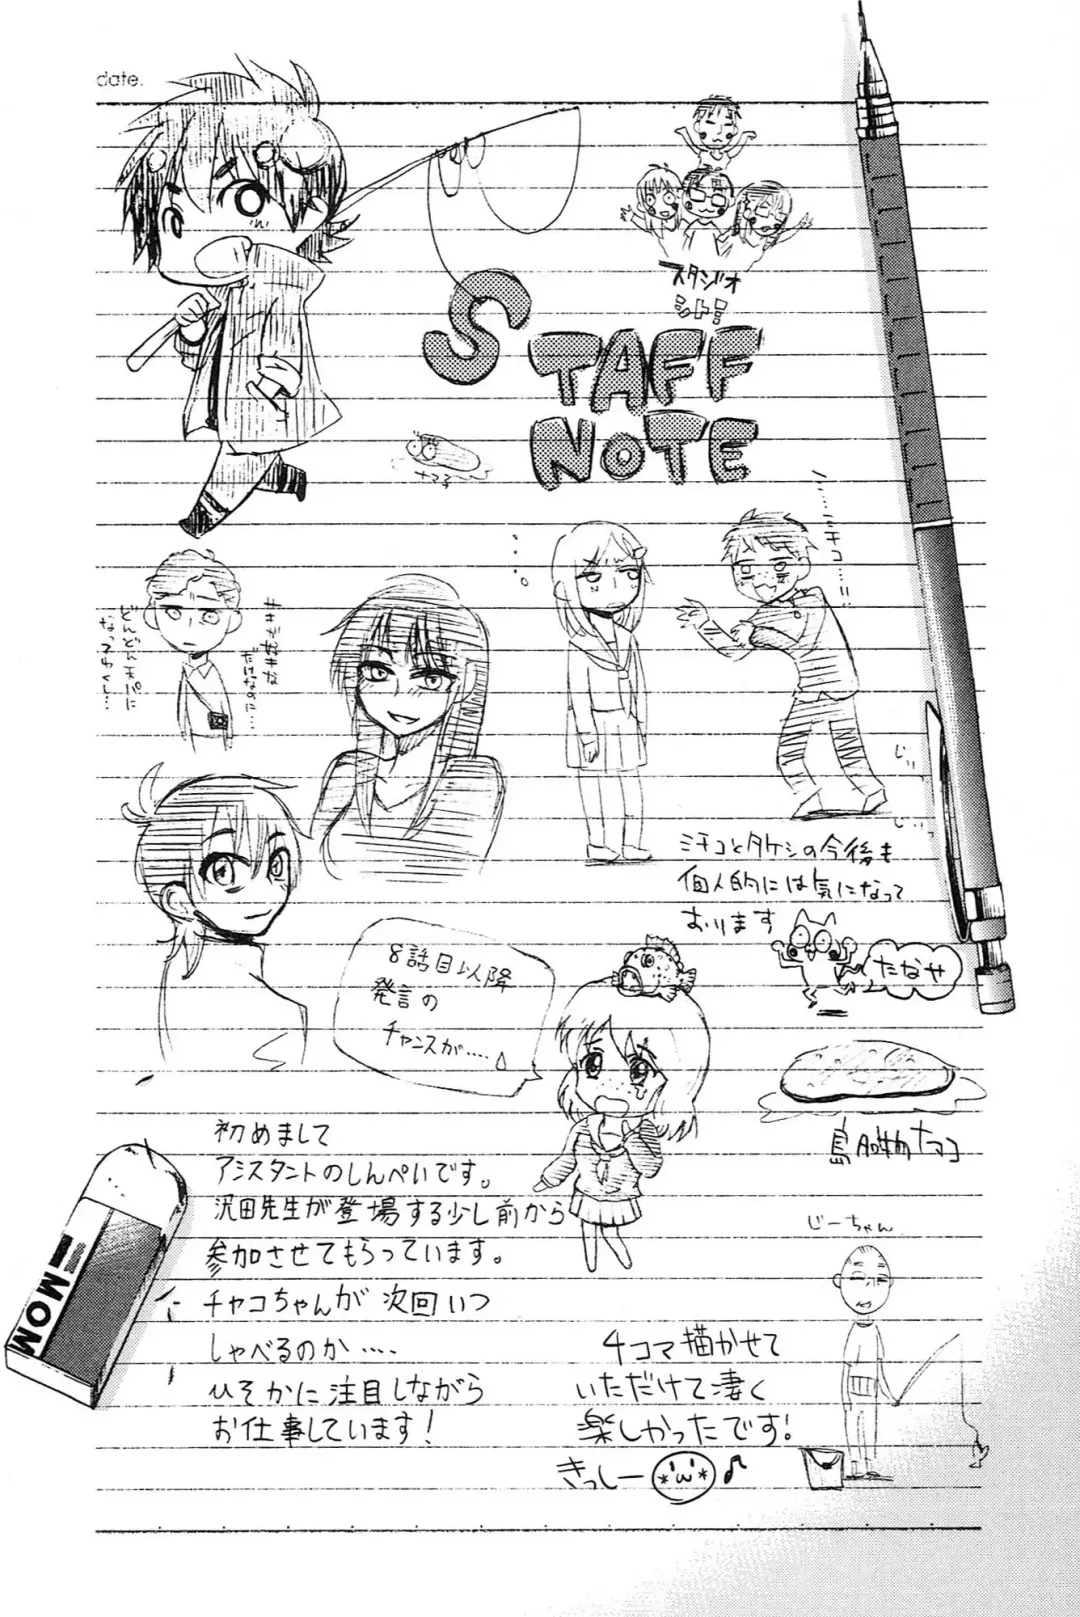 date.
スタジオ
シトミ
STAFF
NOTE
ナマコ
ササミが好きな
だけなのに…
どんどん天パに
なってゆくし…
ミチコ…!!
じりっ
じりっ
ミチコとタケシの今後も
個人的には気になって
おります
たなせ
8話目以降
発言の
チャンスが….
島の産物ナマコ
初めまして
アシスタントのしんぺいです。
沢田先生が登場する少し前から
参加させてもらっています。
チャコちゃんが次回いつ
しゃべるのか….
ひそかに注目しながら
お仕事しています!
MOM
じーちゃん
4コマ描かせて
いただけて凄く
楽しかったです!
きっしー*'ω'*♪